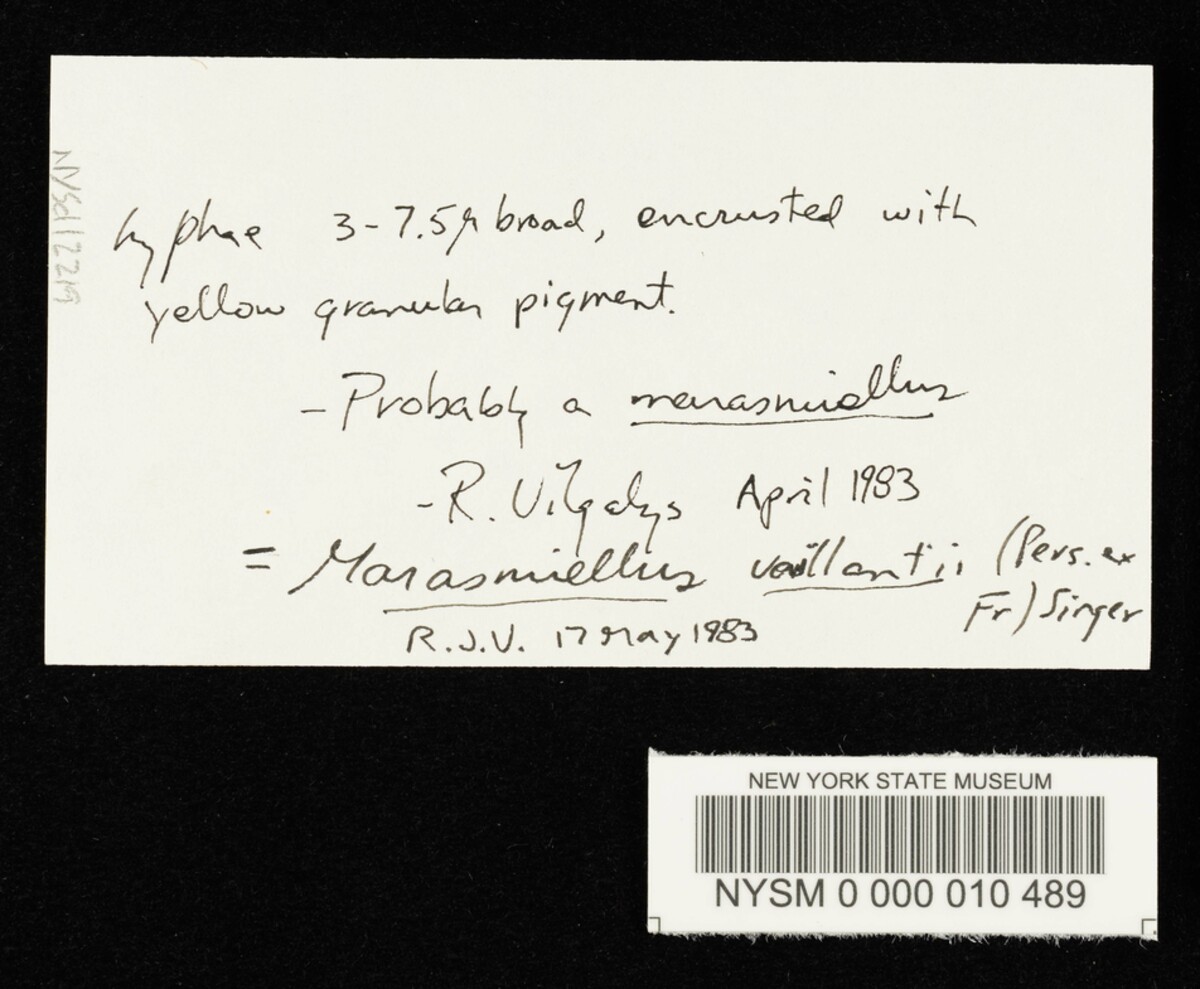 hyphae 3-7.5µ broad, encrusted with
yellow granular pigment.
- Probably a marasmiellus
- R. Vilgalys April 1983
= Marasmiellus vaillantii (Pers. ex
Fr) Singer
R.J.V. 17 May 1983
NEW YORK STATE MUSEUM
NYSM 0 000 010 489